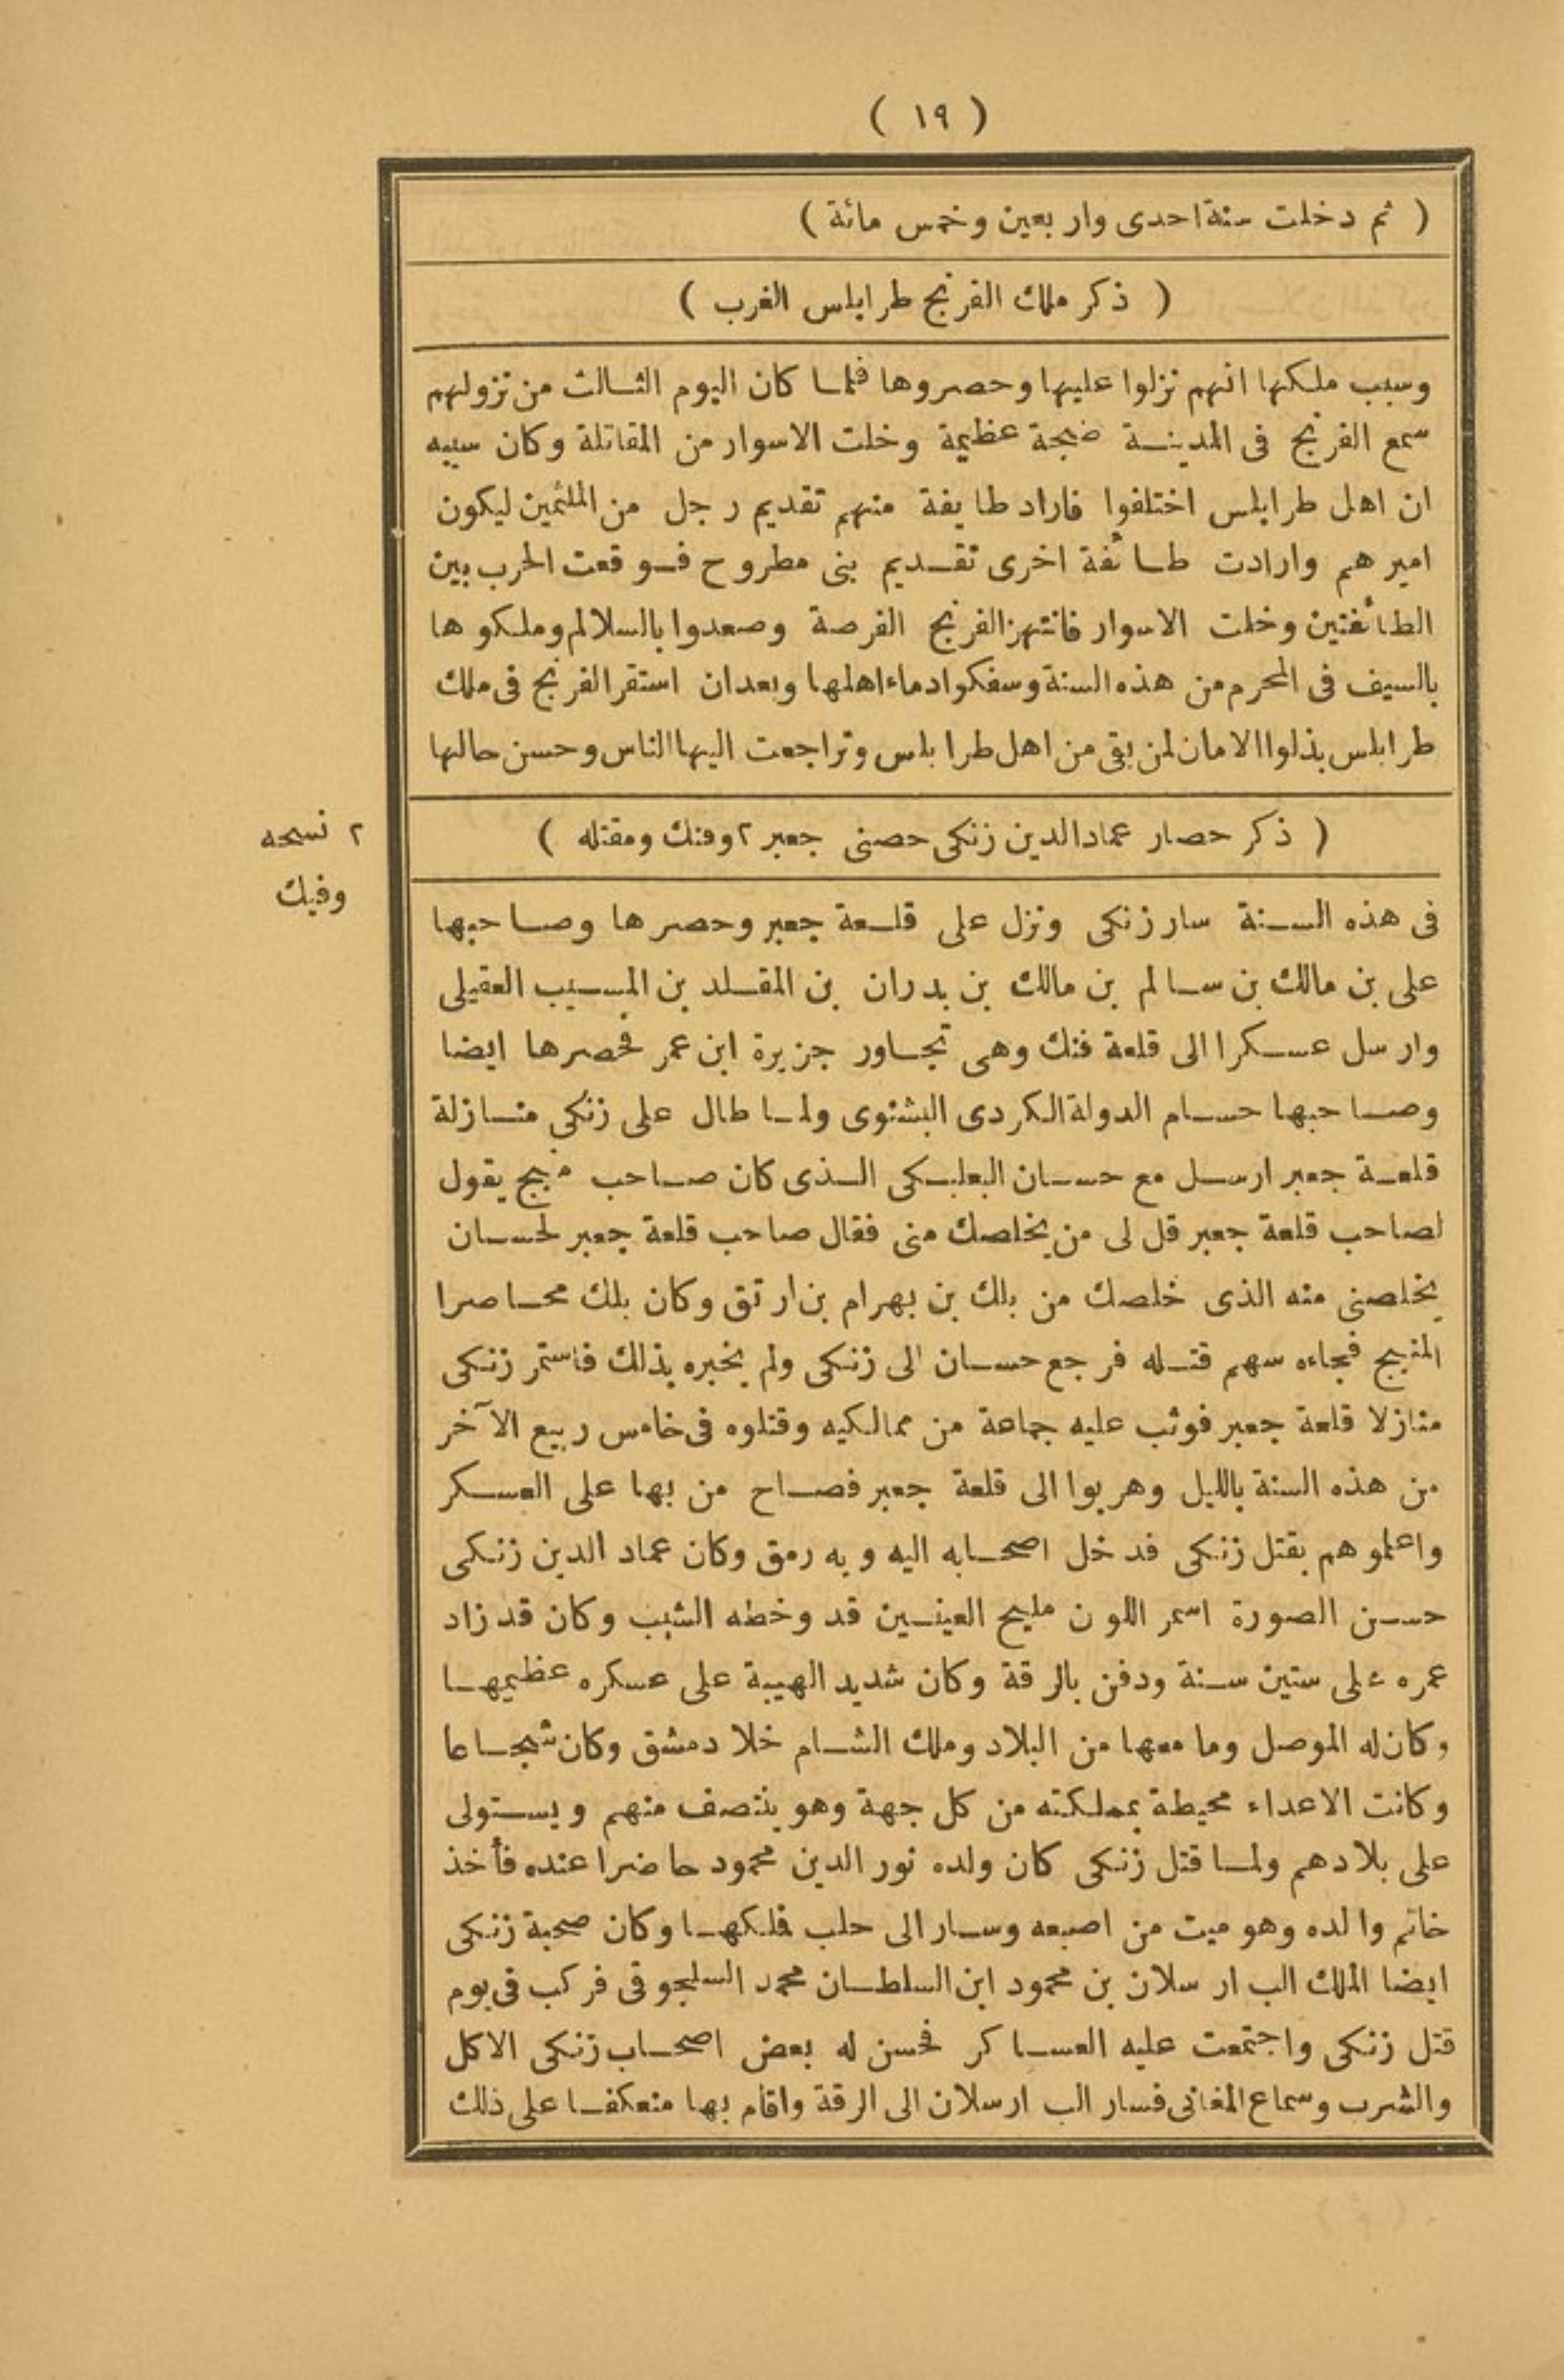 ( ١٩ )
( ثم دخلت سنة احدى واربعين وخمس مائة )
( ذكر ملك الفرنج طرابلس الغرب )
وسبب ملكها انهم نزلوا عليها وحصروها فلما كان اليوم الثالث من نزولهم
سمع الفرنج فى المدينة ضجة عظيمة وخلت الاسوار من المقاتلة وكان سببه
ان اهل طرابلس اختلفوا فاراد طايفة منهم تقديم رجل من الملثمين ليكون
اميرهم وارادت طائفة اخرى تقديم بنى مطروح فوقعت الحرب بين
الطائفتين وخلت الاسوار فانتهز الفرنج الفرصة وصعدوا بالسلالم وملكوها
بالسيف فى المحرم من هذه السنة وسفكوا دماء اهلها وبعد ان استقر الفرنج فى ملك
طرابلس بذلوا الامان لمن بقى من اهل طرابلس وتراجعت اليها الناس وحسن حالها
( ذكر حصار عماد الدين زنكى حصنى جعبر ٢ وفنك ومقتله )
٢ نسخه
وفيك
فى هذه السنة سار زنكى ونزل على قلعة جعبر وحصرها وصاحبها
على بن مالك بن سالم بن مالك بن بدران بن المقلد بن المسيب العقيلى
وارسل عسكرا الى قلعة فنك وهى تجاور جزيرة ابن عمر فحصرها ايضا
وصاحبها حسام الدولة الكردى البشنوى ولما طال على زنكي منازلة
قلعة جعبر ارسل مع حسان البعلبكى الذى كان صاحب منبج يقول
لصاحب قلعة جعبر قل لى من يخلصك منى فقال صاحب قلعة جعبر لحسان
يخلصنى منه الذى خلصك من بلك بن بهرام بن ارتق وكان بلك محاصرا
لمنبج فجاءه سهم قتله فرجع حسان الى زنكى ولم يخبره بذلك فاستمر زنكى
منازلا قلعة جعبر فوثب عليه جماعة من مماليكه وقتلوه فى خامس ربيع الآخر
من هذه السنة بالليل وهربوا الى قلعة جعبر فصاح من بها على العسكر
واعلموهم بقتل زنكى فدخل اصحابه اليه وبه رمق وكان عماد الدين زنكى
حسن الصورة اسمر اللون مليح العينين قد وخطه الشيب وكان قد زاد
عمره على ستين سنة ودفن بالرقة وكان شديد الهيبة على عسكره عظيمها
وكان له الموصل وما معها من البلاد وملك الشام خلا دمشق وكان شجاعا
وكانت الاعداء محيطة بمملكته من كل جهة وهو ينتصف منهم ويستولى
على بلادهم ولما قتل زنكى كان ولده نور الدين محمود حاضرا عنده فأخذ
خاتم والده وهو ميت من اصبعه وسار الى حلب فلكها وكان صحبة زنكى
ايضا الملك الب ارسلان بن محمود ابن السلطان محمد السلجوقى فركب فى يوم
قتل زنكى واجتمعت عليه العساكر فحسن له بعض اصحاب زنكى الاكل
والشرب وسماع المغانى فسار الب ارسلان الى الرقة واقام بها منعكفا على ذلك